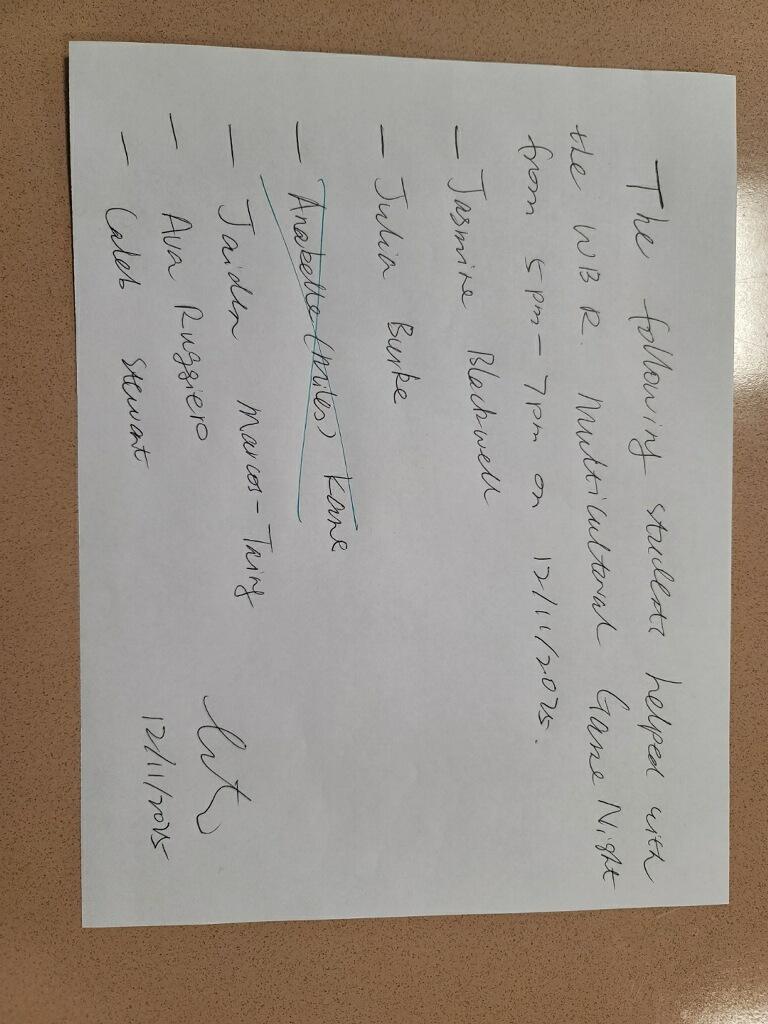 The following students helped with
the WBR Multicultural Game Night
from 5pm - 7pm on 12/11/2025.
- Jasmine Blackwell
- Julia Burke
- Anabelle (Miles) Kane
- Jaiden Marcos-Taing
- Ava Ruggiero
- Caleb Stewart
12/11/2025